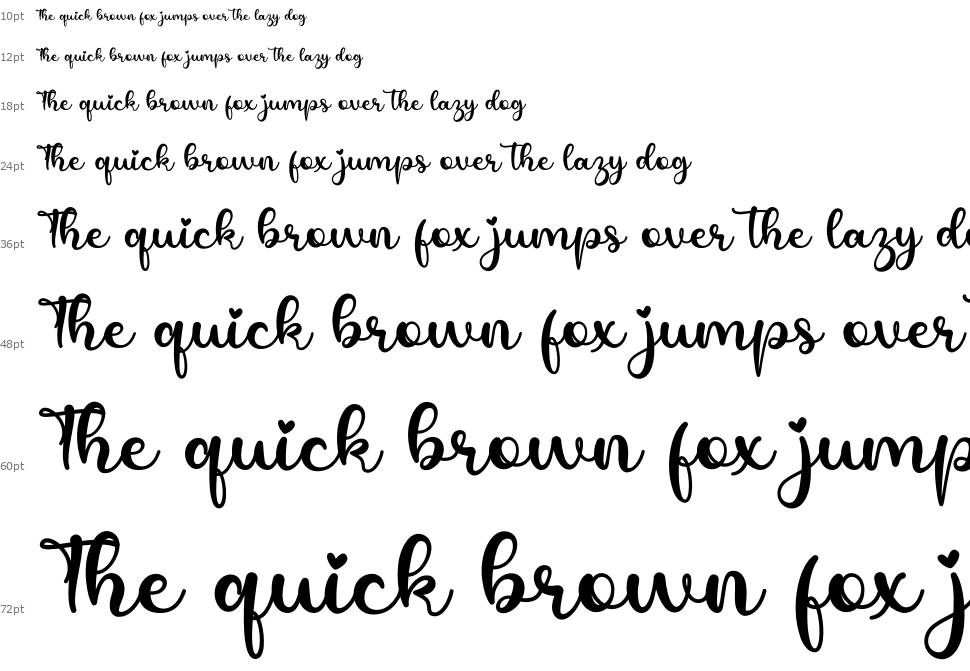 10pt The quick brown fox jumps over the lazy dog
12pt The quick brown fox jumps over the lazy dog
18pt The quick brown fox jumps over the lazy dog
24pt The quick brown fox jumps over the lazy dog
36pt The quick brown fox jumps over the lazy do
48pt The quick brown fox jumps over
60pt The quick brown fox jump
72pt The quick brown fox j